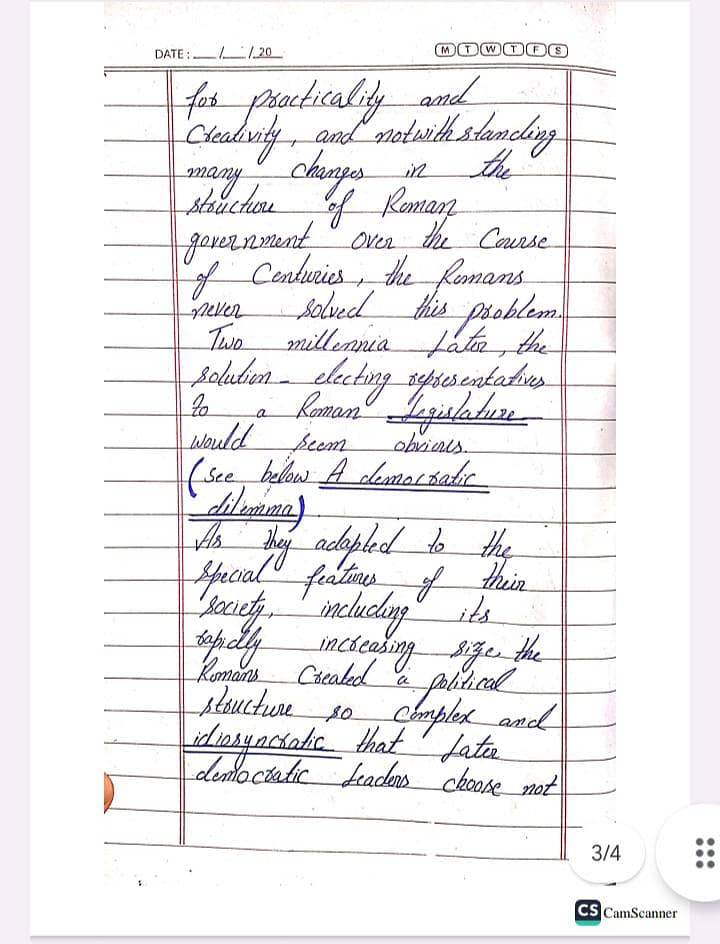 DATE : __/__/ 20
M T W T F S
for practicality and
Creativity, and notwithstanding
many changes in the
structure of Roman
government over the Course
of Centuries, the Romans
never solved this problem.
Two millennia Later, the
Solution - electing representatives
to a Roman Legislature
would seem obvious.
(see below A democratic
dilemma)
As they adapted to the
Special features of their
Society, including its
rapidly increasing size, the
Romans Created a political
structure so Complex and
idiosyncratic that Later
democratic Leaders choose not
3/4
CS CamScanner